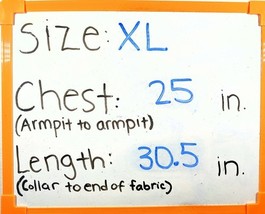 Size: XL
Chest: 25 in.
(Armpit to armpit)
Length: 30.5 in.
(Collar to end of fabric)